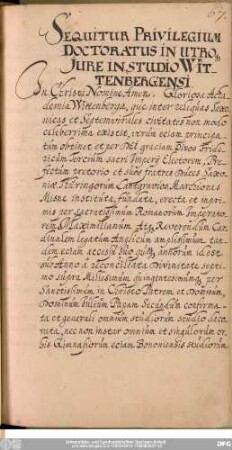 67.
SEQUITUR PRIVILEGIUM
DOCTORATUS IN UTROQ
JURE IN STUDIO WIT-
TENBERGENSI
In Christi Nomine Amen. Gloriosa Aca-
demia Wittenberga, quæ inter reliquas Saxo-
nicas et Septemvirales civitates non modo
celeberrima existit, verum etiam principa-
tum obtinet et per Dei graciam Divos Fride-
ricum Tercium sacri Imperij Electorem,
fectum pretorio et suos fratres Duces Saxo-
niæ Thuringorum Lantgravios Marchiones
Misne instituta, fundata, erecta et inpri-
mis per sacratissimum Romanorum Imperato-
rem Maximilianum Aug. Reverendum Car-
dinalem legatum Anglicum amplissimum tan-
dem eciam accessu duo quoq, annorum id est
anno a reconciliata Divinitate septi-
mo supra Millesimum quingentesimumq, per
Sanctissimum in Christo Patrem et Dominum,
Dominum Iulium Papam Secundum confirma-
ta et generali omnium studiorum studio deco-
rata, nec non instar omnium et singulorum or-
bis Gimnasiorum eciam Bononiensis studiorum